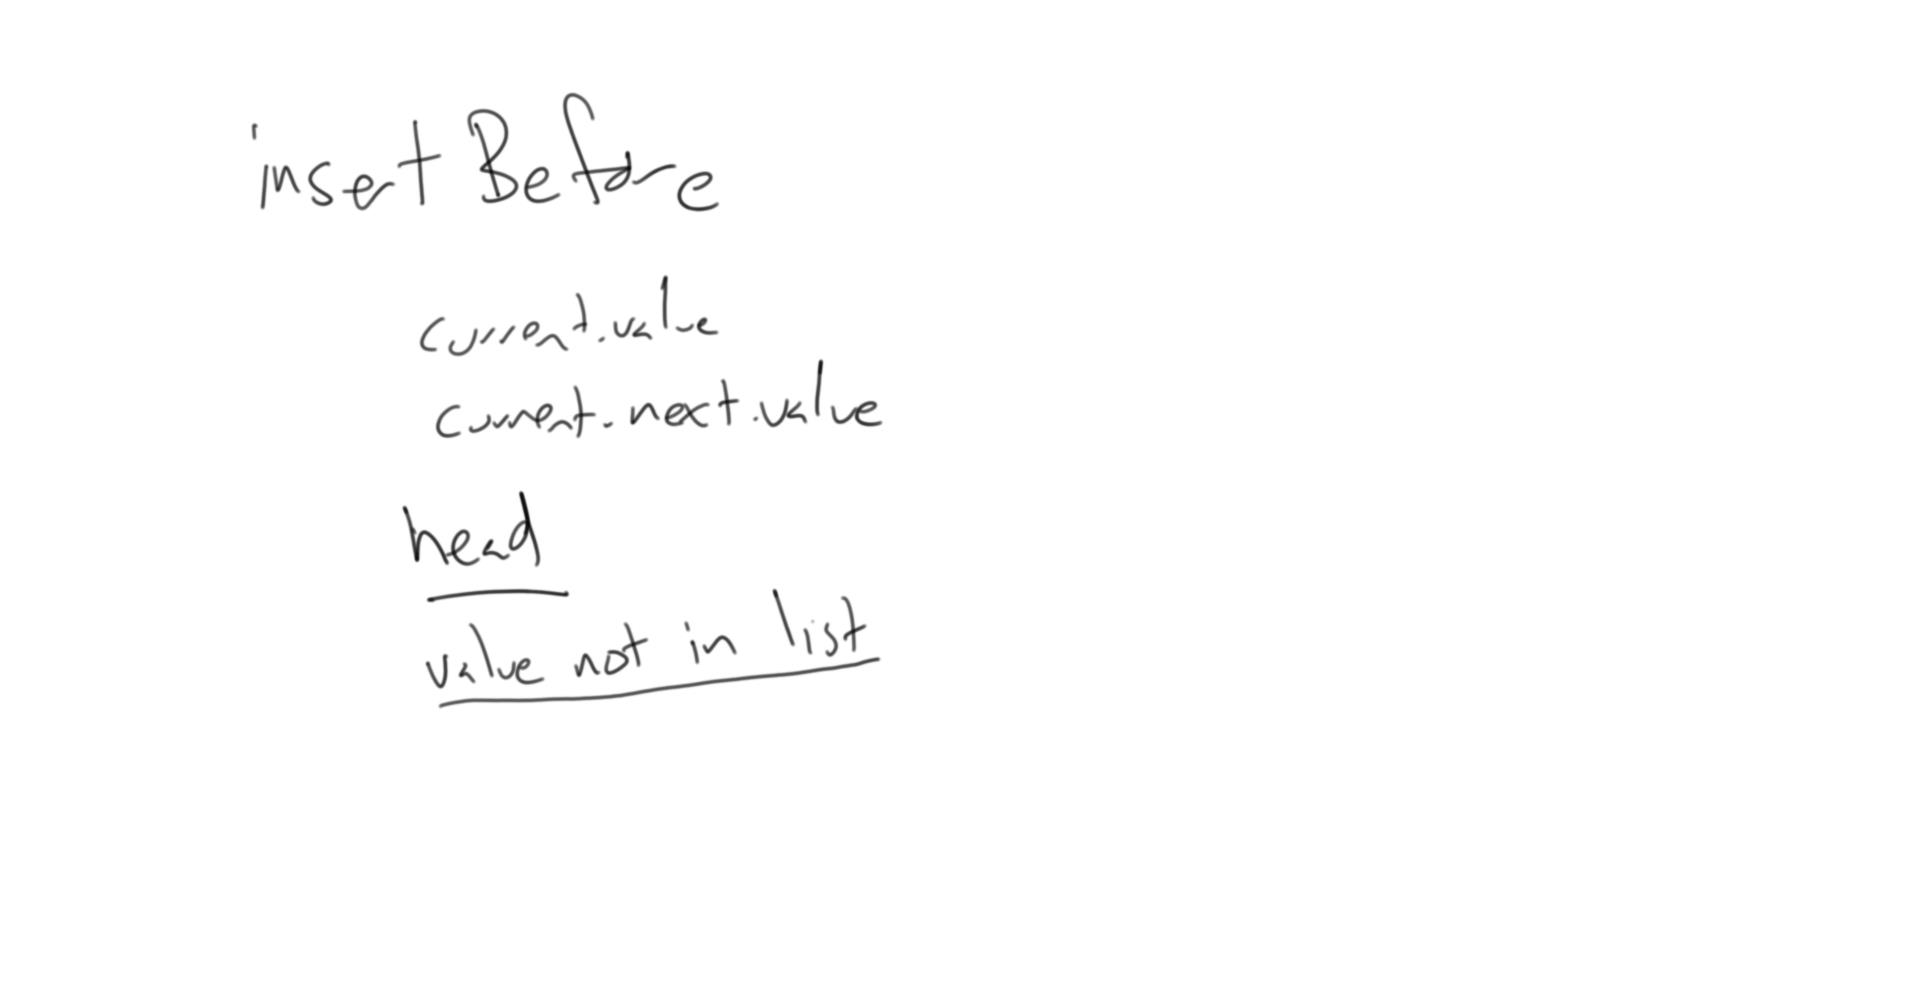 insertBefore
current.value
current.next.value
head
value not in list